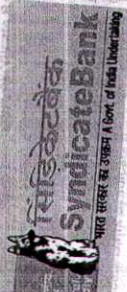 सिंडिकेटबैंक
SyndicateBank
भारत सरकार का उपक्रम A Govt of India Undertaking